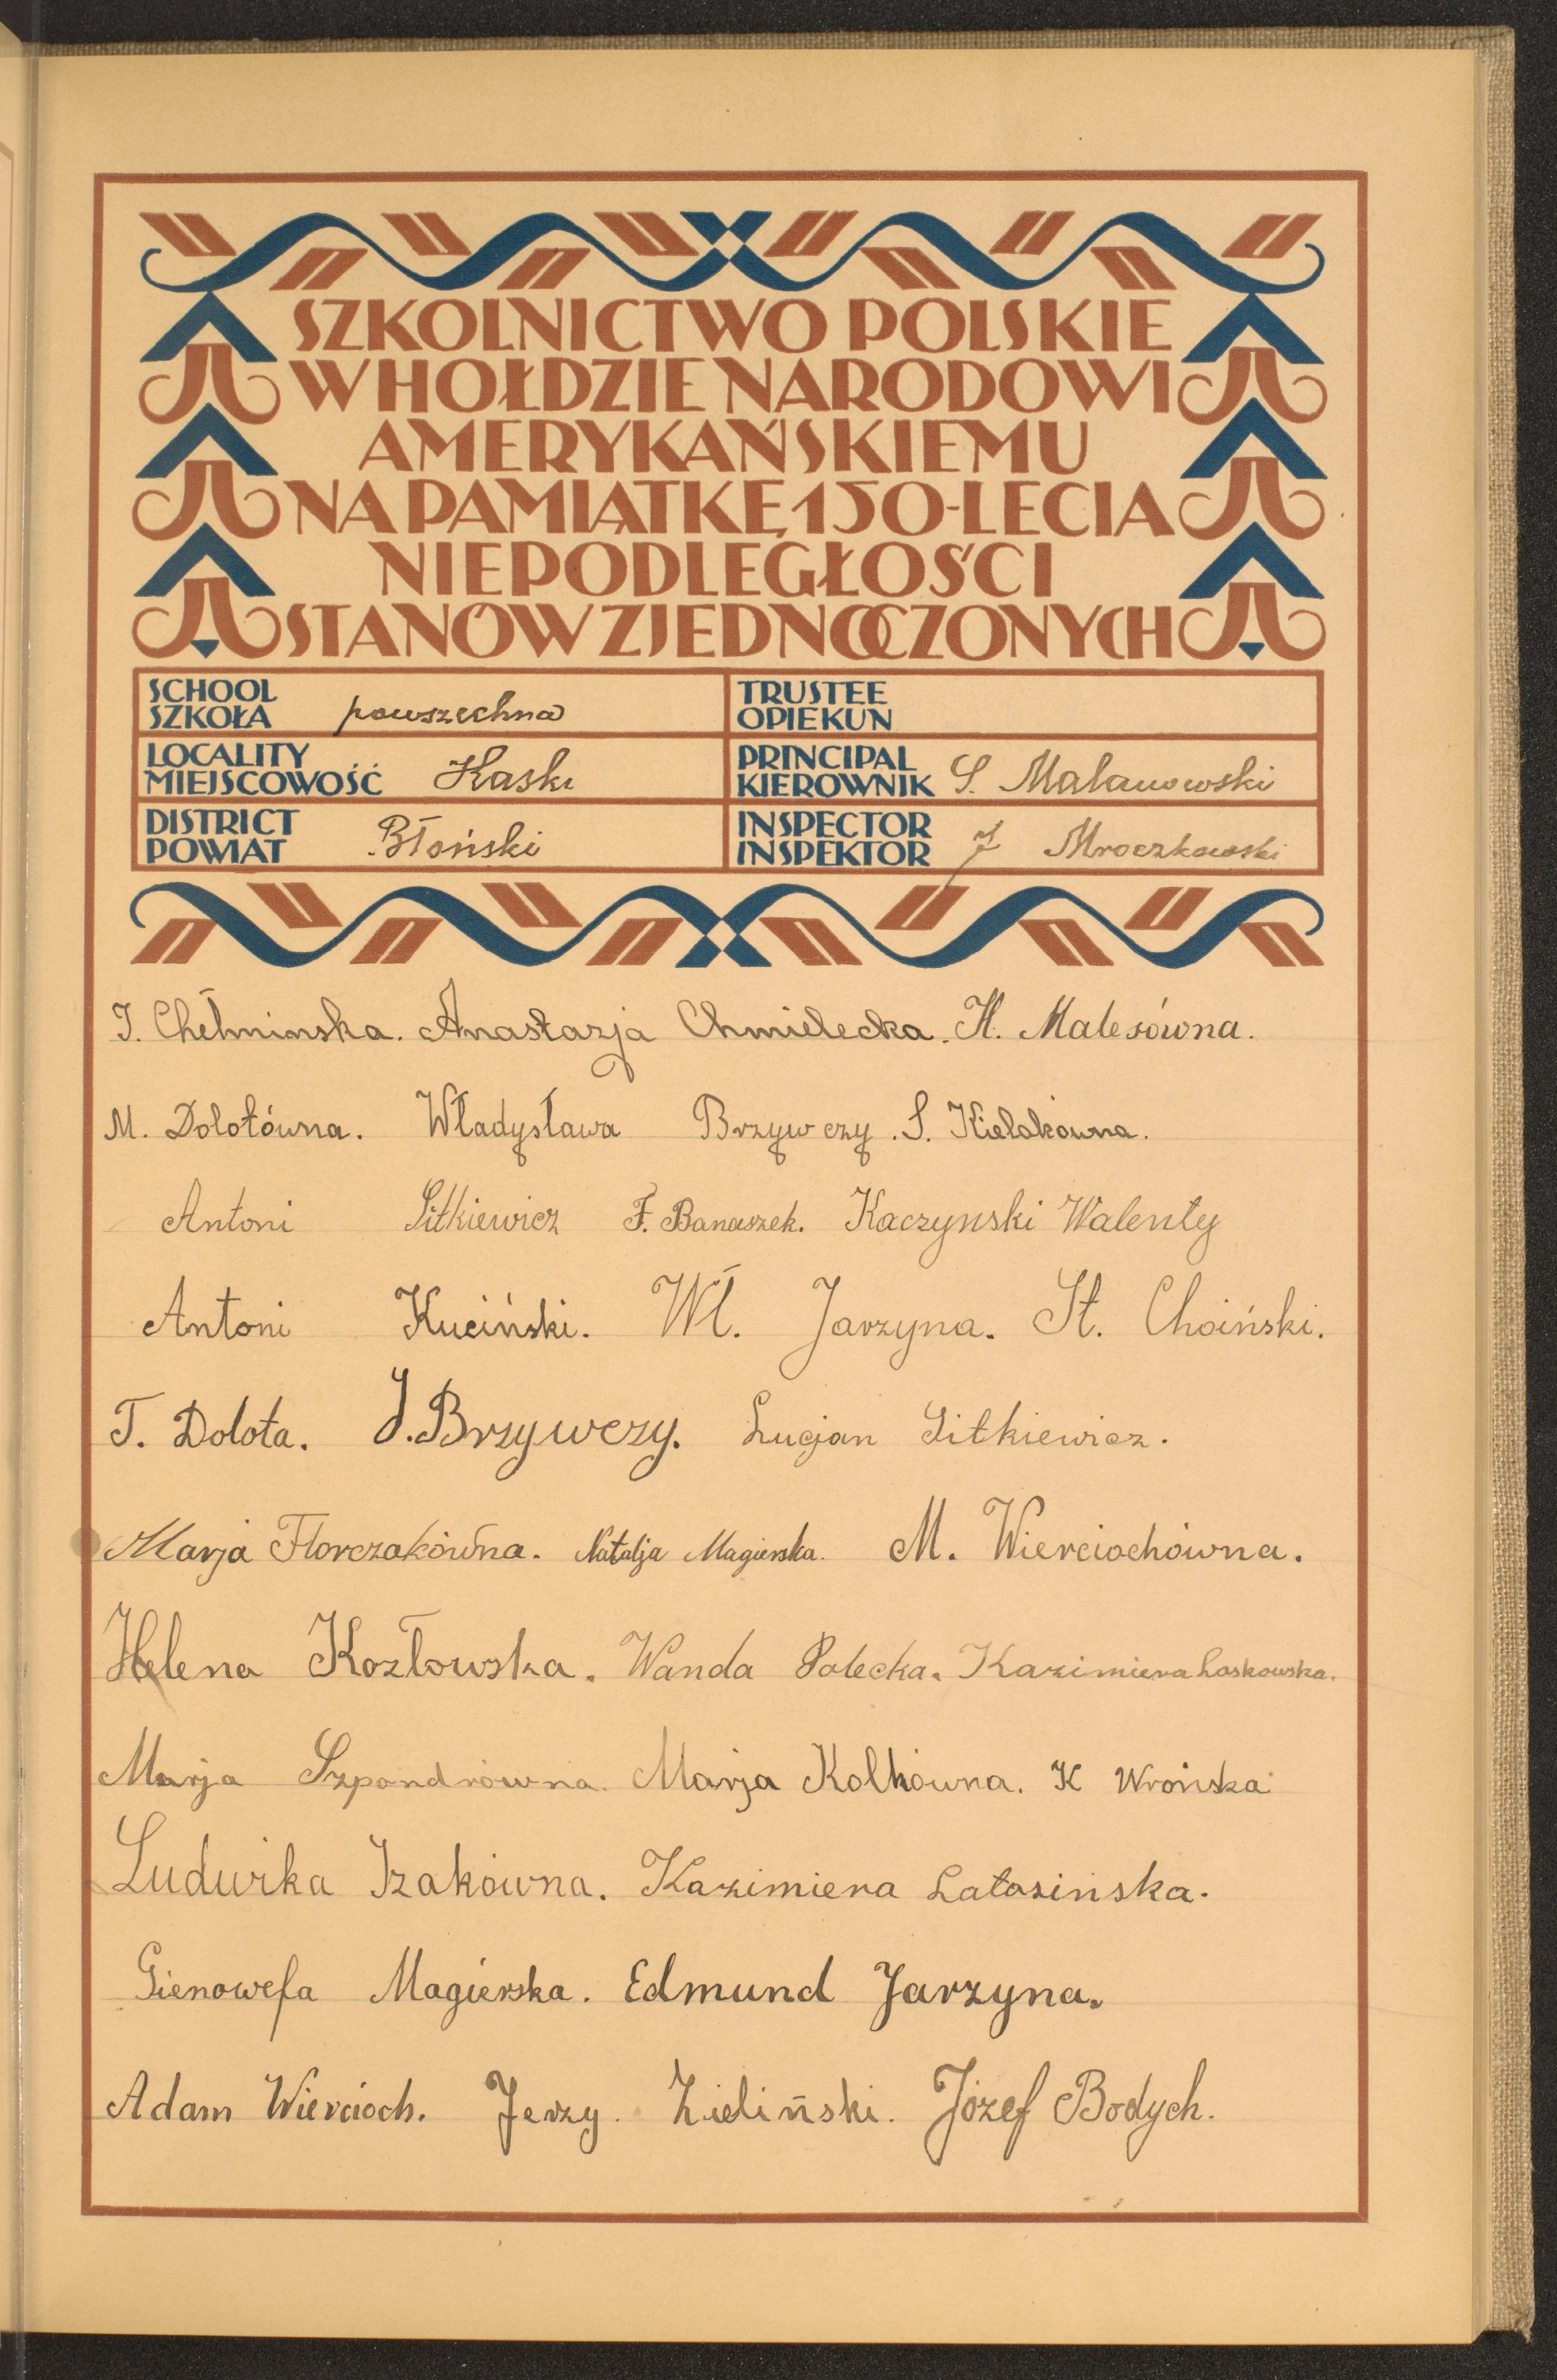 SZKOLNICTWO POLSKIE
W HOŁDZIE NARODOWI
AMERYKAŃSKIEMU
NA PAMIĄTKĘ 150-LECIA
NIEPODLEGŁOŚCI
STANÓW ZJEDNOCZONYCH
SCHOOL
SZKOŁA powszechna
TRUSTEE
OPIEKUN
LOCALITY
MIEJSCOWOŚĆ Kaski
PRINCIPAL
KIEROWNIK S. Malanowski
DISTRICT
POWIAT Błoński
INSPECTOR
INSPEKTOR J Mroczkowski
J. Chełminska. Anastazja Chmielecka. H. Malesówna.
M. Dolotówna. Władysława Brzywczy. S. Kielakowna.
Antoni Sitkiewicz F. Banaszek. Kaczynski Walenty
Antoni Kuciński. Wł. Jarzyna. St. Choiński.
T. Dolota. J. Brzywczy. Lucjan Sitkiewicz.
Marja Florczakówna. Natalja Magierska. M. Wierciochówna.
Helena Kozłowska. Wanda Polecka. Kazimiera Laskowska.
Marja Szpondrowna. Marja Kolkówna. K Wrońska
Ludwika Izakówna. Kazimiera Latosinska.
Gienowefa Magierska. Edmund Jarzyna.
Adam Wiercioch. Jerzy Zieliński. Józef Bodych.